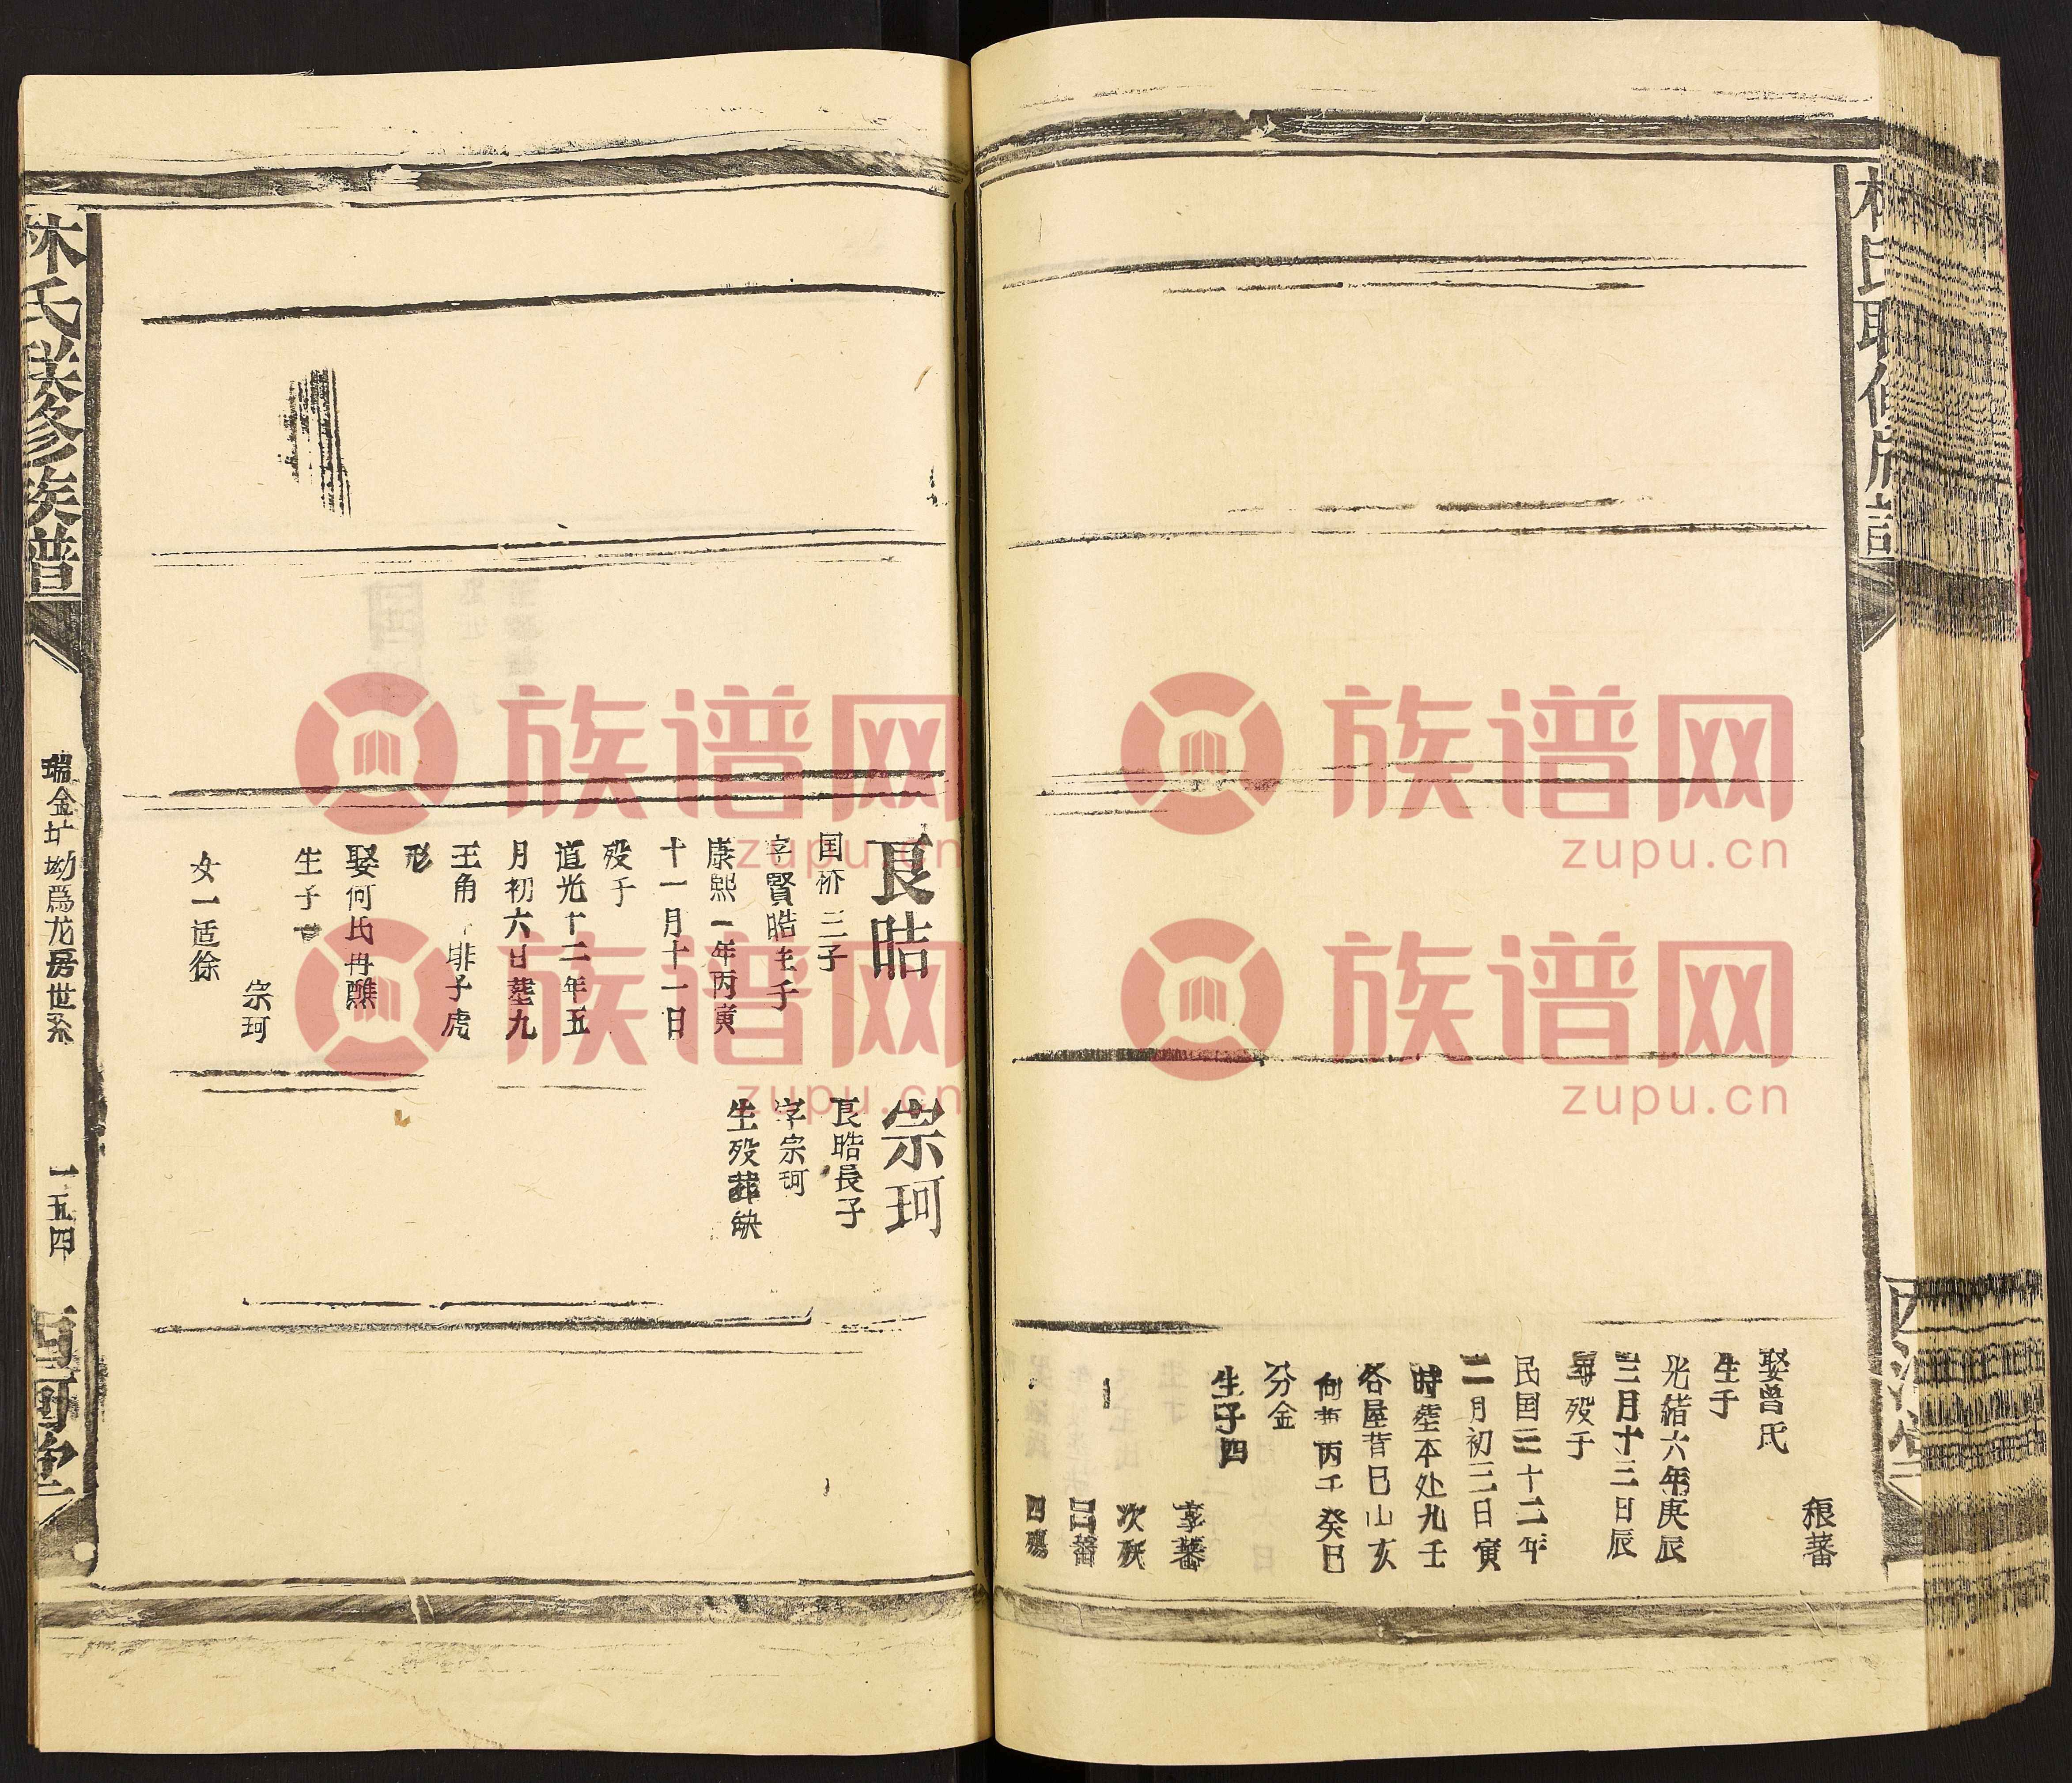 林氏联修族譜
西河堂
根蕃
娶曾氏
生于
光緒六年庚辰
三月十三日辰
時殁于
民国三十二年
二月初三日寅
時塟本处九壬
各屋背巳山亥
向兼丙壬癸巳
分金
生子四
享蕃
次殀
昌蕃
四殤
良晧
国桥三子
字賢晧生于
康熙一年丙寅
十一月十一日
殁于
道光十二年五
月初六日塟九
王角
排子虎
形
娶何氏再醮
生子一
宗珂
女一适徐
宗珂
良晧長子
字宗珂
生殁葬缺
林氏联修族譜
瑞金圹坳爲龙房世系
一五四
西河堂
族谱网
zupu.cn
族谱网
zupu.cn
族谱网
zupu.cn
族谱网
zupu.cn